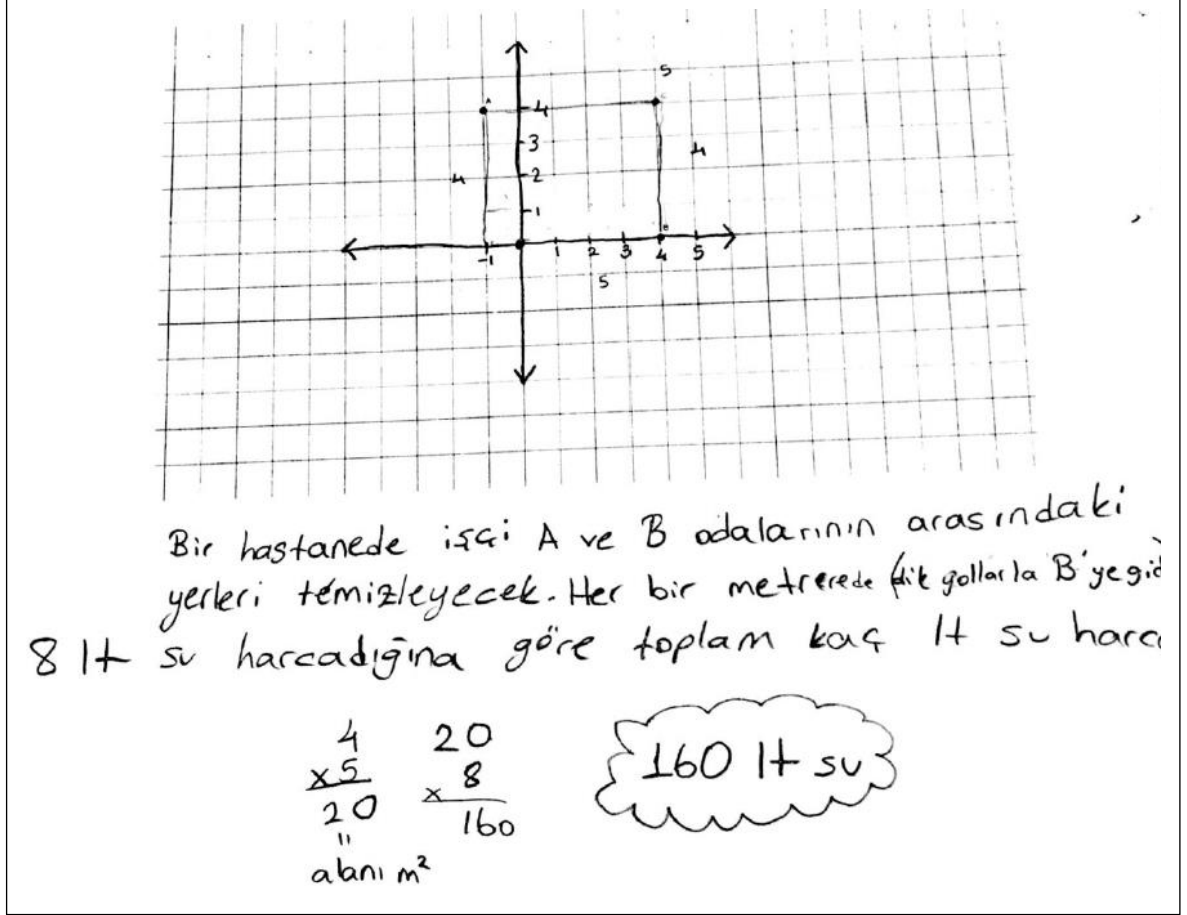 5
A
C
4
3
4
4
2
1
B
-1 1 2 3 4 5
5
Bir hastanede işçi A ve B odalarının arasındaki
yerleri temizleyecek. Her bir metrerede (dik yollarla B'ye gid
8 lt su harcadığına göre toplam kaç lt su harc
4 20
x5 x 8
20 160
"
alanı m²
160 lt su